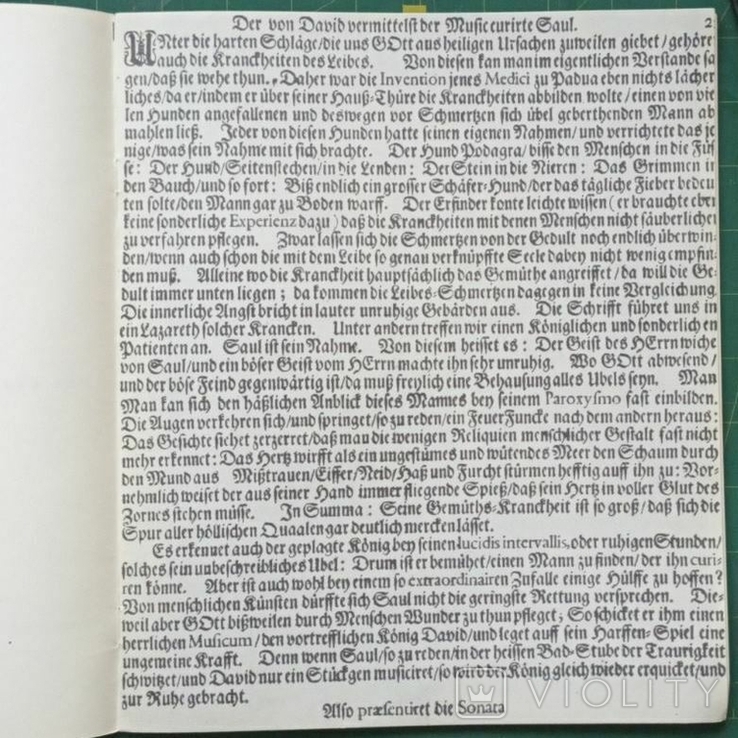 Der von David vermittelst der Music curirte Saul.
2
UNter die harten Schläge/die uns GOtt aus heiligen Ursachen zuweilen giebet/gehöre
auch die Kranckheiten des Leibes. Von diesen kan man im eigentlichen Verstande sa
gen/daß sie wehe thun. Daher war die Invention jenes Medici zu Padua eben nichts lächer
liches/da er/indem er über seiner Hauß-Thüre die Kranckheiten abbilden wolte/einen von vie
len Hunden angefallenen und deswegen vor Schmertzen sich übel geberthenden Mann ab
mahlen ließ. Jeder von diesen Hunden hatte seinen eigenen Nahmen/und verrichtete das je
nige/was sein Nahme mit sich brachte. Der Hund Podagra/bisse den Menschen in die Füs
se: Der Hund/Seitenstechen/in die Lenden: Der Stein in die Nieren: Das Grimmen in
den Bauch/und so fort: Biß endlich ein grosser Schäfer-Hund/der das tägliche Fieber bedeu
ten solte/den Mann gar zu Boden warff. Der Erfinder konte leichte wissen (er brauchte eben
keine sonderliche Experienz dazu) daß die Kranckheiten mit denen Menschen nicht säuberlicher
zu verfahren pflegen. Zwar lassen sich die Schmertzen von der Gedult noch endlich überwin-
den/wenn auch schon die mit dem Leibe so genau verknüpffte Seele dabey nicht wenig empfin-
den muß. Alleine wo die Kranckheit hauptsächlich das Gemüthe angreiffet/da will die Ge-
dult immer unten liegen; da kommen die Leibes-Schmertzen dagegen in keine Vergleichung.
Die innerliche Angst bricht in lauter unruhige Gebärden aus. Die Schrifft führet uns in
ein Lazareth solcher Krancken. Unter andern treffen wir einen Königlichen und sonderlichen
Patienten an. Saul ist sein Nahme. Von diesem heisset es: Der Geist des HErrn wiche
von Saul/und ein böser Geist vom HErrn machte ihn sehr unruhig. Wo GOtt abwesend/
und der böse Feind gegenwärtig ist/da muß freylich eine Behausung alles Ubels seyn. Man
Man kan sich den häßlichen Anblick dieses Mannes bey seinem Paroxysmo fast einbilden.
Die Augen verkehren sich/und springet/so zu reden/ein FeuerFuncke nach dem andern heraus:
Das Gesichte siehet zerzerret/daß man die wenigen Reliquien menschlicher Gestalt fast nicht
mehr erkennet: Das Hertz wirfft als ein ungestümes und wütendes Meer den Schaum durch
den Mund aus Mißtrauen/Eiffer/Neid/Haß und Furcht stürmen hefftig auff ihn zu: Vor-
nehmlich weiset der aus seiner Hand immer fliegende Spieß/daß sein Hertz in voller Glut des
Zornes stehen müsse. In Summa: Seine Gemüths-Kranckheit ist so groß/daß sich die
Spur aller höllischen Quaalen gar deutlich mercken lässet.
Es erkennet auch der geplagte König bey seinen lucidis intervallis, oder ruhigen Stunden/
solches sein unbeschreibliches Ubel: Drum ist er bemühet/einen Mann zu finden/der ihn curi-
ren könne. Aber ist auch wohl bey einem so extraordinairen Zufalle einige Hülffe zu hoffen?
Von menschlichen Künsten dürffte sich Saul nicht die geringste Rettung versprechen. Die-
weil aber GOtt bißweilen durch Menschen Wunder zu thun pfleget; So schicket er ihm einen
herrlichen Musicum/den vortrefflichen König David/und leget auff sein Harffen-Spiel eine
ungemeine Krafft. Denn wenn Saul/so zu reden/in der heissen Bad-Stube der Traurigkeit
schwitzet/und David nur ein Stückgen musiciret/so wird der König gleich wieder erquicket/und
zur Ruhe gebracht.
Also præsentiret die Sonata
VIOLITY